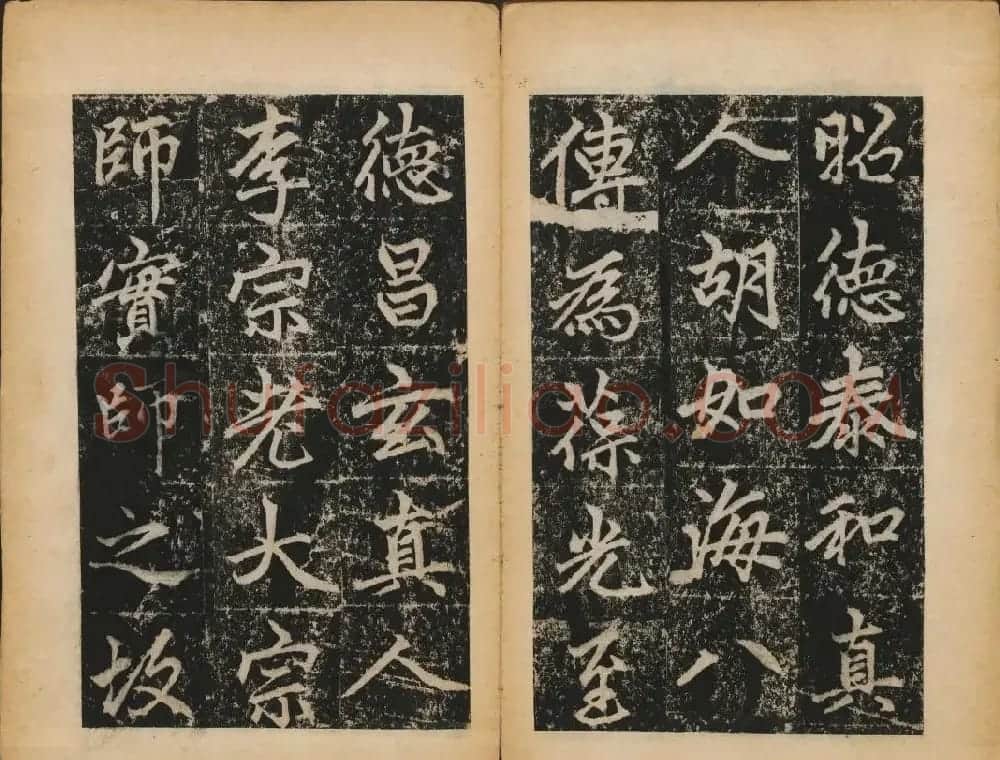 昭德泰和真
人胡如海八
傳為徐光至
德昌玄真人
李宗老大宗
師實師之故
Shufaziliao.COM